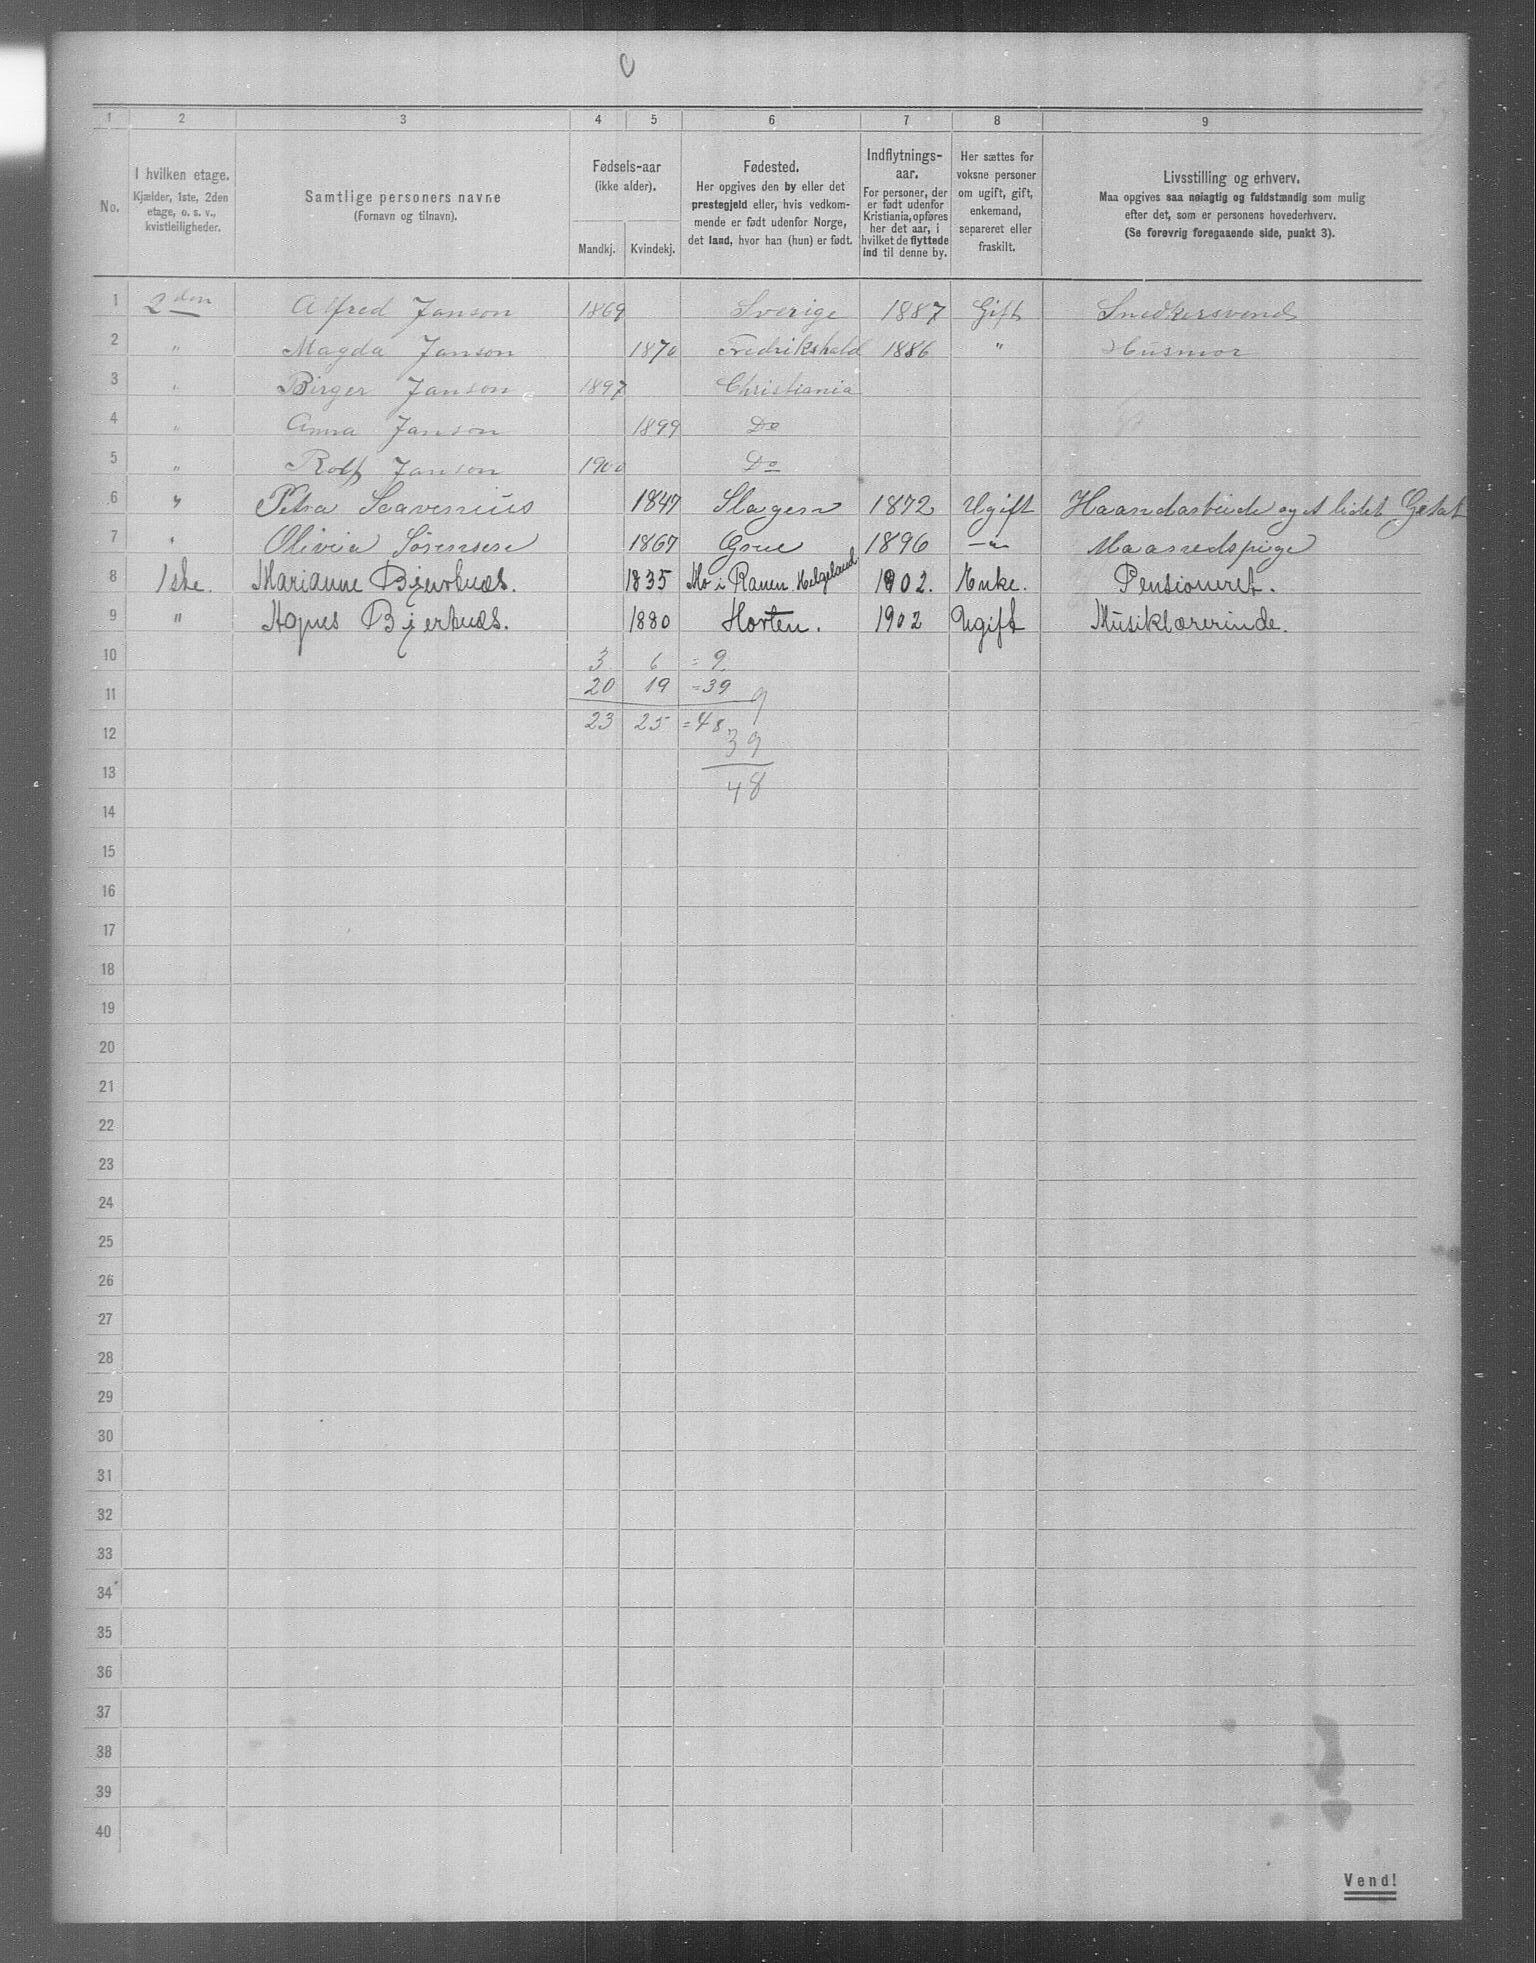 1 2 3 4 5 6 7 8 9
No.
I hvilken etage.
Kjælder, 1ste, 2den
etage, o. s. v.,
kvistleiligheder.
Samtlige personers navne
(Fornavn og tilnavn).
Fødsels-aar
(ikke alder).
Mandkj. Kvindekj.
Fødested.
Her opgives den by eller det
prestegjeld eller, hvis vedkom-
mende er født udenfor Norge,
det land, hvor han (hun) er født.
Indflytnings-
aar.
For personer, der
er født udenfor
Kristiania, opføres
her det aar, i
hvilket de flyttede
ind til denne by.
Her sættes for
voksne personer
om ugift, gift,
enkemand,
separeret eller
fraskilt.
Livsstilling og erhverv.
Maa opgives saa nøiagtig og fuldstændig som mulig
efter det, som er personens hovederhverv.
(Se forøvrig foregaaende side, punkt 3).
1 2den Alfred Janson 1869 Sverige 1887 Gift Snedkersvend
2 " Magda Janson 1870 Fredrikshald 1886 " Husmor
3 " Birger Janson 1897 Christiania
4 " Anna Janson 1899 Do
5 " Rolf Janson 1900 Do
6 " Petra Scavenius 1847 Slagen 1872 Ugift Haandarbeide og et lidet
7 " Olivia Sørensen 1867 Grue 1896 –"– Maanedspige
8 1ste. Marianne Bjerknæs. 1835 Mo i Ranen Helgeland 1902. Enke. Pensioneret.
9 " Agnes Bjerknæs. 1880 Horten. 1902 Ugift Musiklærerinde.
10 3 6 = 9
11 20 19 = 39 9
12 23 25 = 48 39
13 48
14
15
16
17
18
19
20
21
22
23
24
25
26
27
28
29
30
31
32
33
34
35
36
37
38
39
40
Vend!